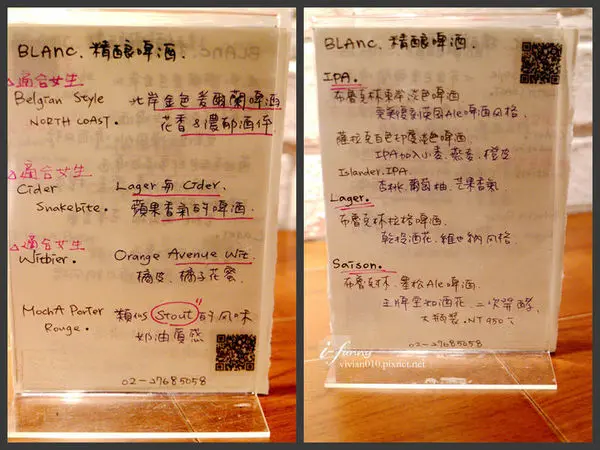 BLANC. 精釀啤酒.
△適合女生
Belgian Style 北岸金色麦爾蘭啤酒
NORTH COAST. 花香&濃郁酒伴
△適合女生
Cider Lager 與 Cider.
Snakebite. 蘋果香氣的啤酒.
△適合女生
Witbier. Orange Avenue Wit.
橘皮. 橘子花蜜.
MochA Porter 類似 "Stout" 的風味
Rouge. 奶油質感
02-27685058
BLANC. 精釀啤酒.
IPA.
布魯克林東岸淡色啤酒
完美復刻英國Ale啤酒風格.
薩拉克百色印度淡色啤酒
IPA加入小麥. 橙皮
Islander. IPA
杏桃. 葡萄柚. 芒果香氣
Lager.
布魯克林拉格啤酒.
乾投酒花. 維也納風格.
Saison.
Ale啤酒.
王牌空知酒花. 二次發酵.
大瓶裝. NT 950元
i-funny
vivian010.pixnet.net
02-27685058